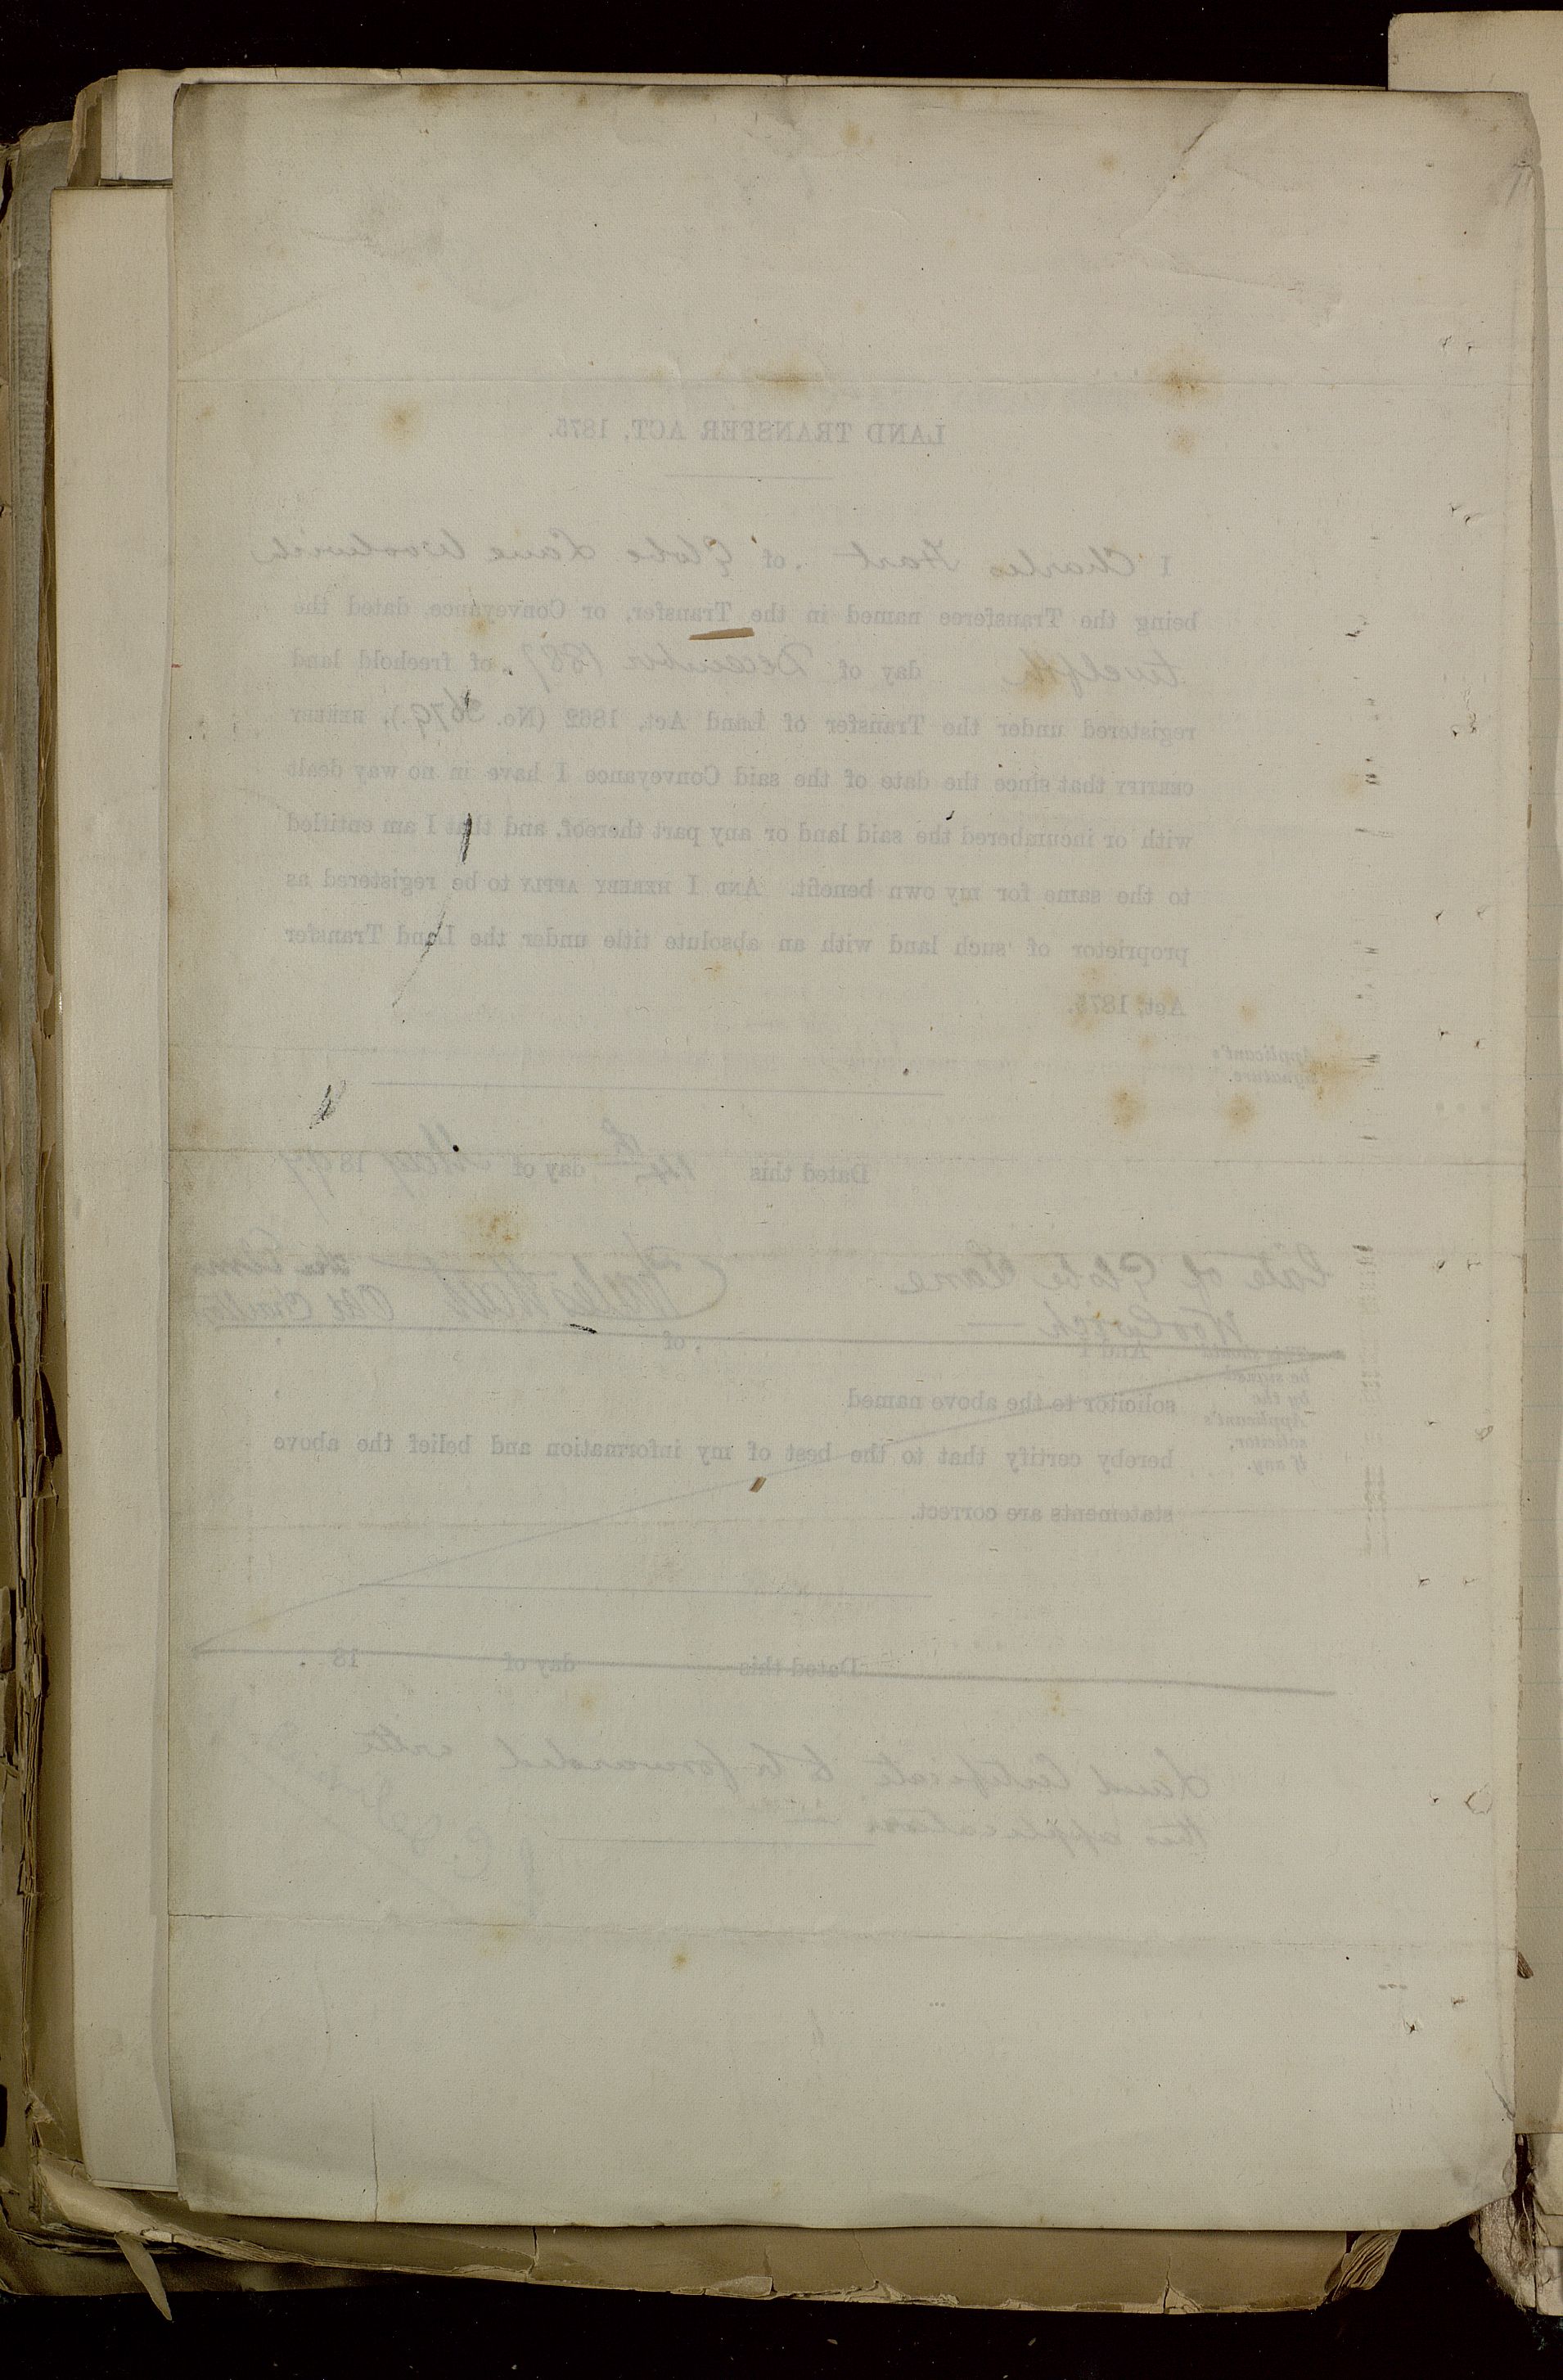 LAND TRANSFER ACT, 1875.
I Charles Hart of Globe Lane Woolwich
being the Transferee named in the Transfer, or Conveyance, dated the
twelfth day of December 1887, of freehold land
registered under the Transfer of Land Act, 1862 (No. 3679.), HEREBY
CERTIFY that since the date of the said Conveyance I have in no way dealt
with or incumbered the said land or any part thereof, and that I am entitled
to the same for my own benefit. AND I HEREBY APPLY to be registered as
proprietor of such land with an absolute title under the Land Transfer
Act, 1875.
Applicant's
signature.
Dated this 14th day of May 1897
late of Globe Lane
Woolwich
Charles Hart
The Elms
Old Charlton
This should
be signed
by the
Applicant's
solicitor,
if any.
And I of
solicitor to the above named
hereby certify that to the best of my information and belief the above
statements are correct.
Dated this day of 18 .
Land Certificate to be forwarded with
this application